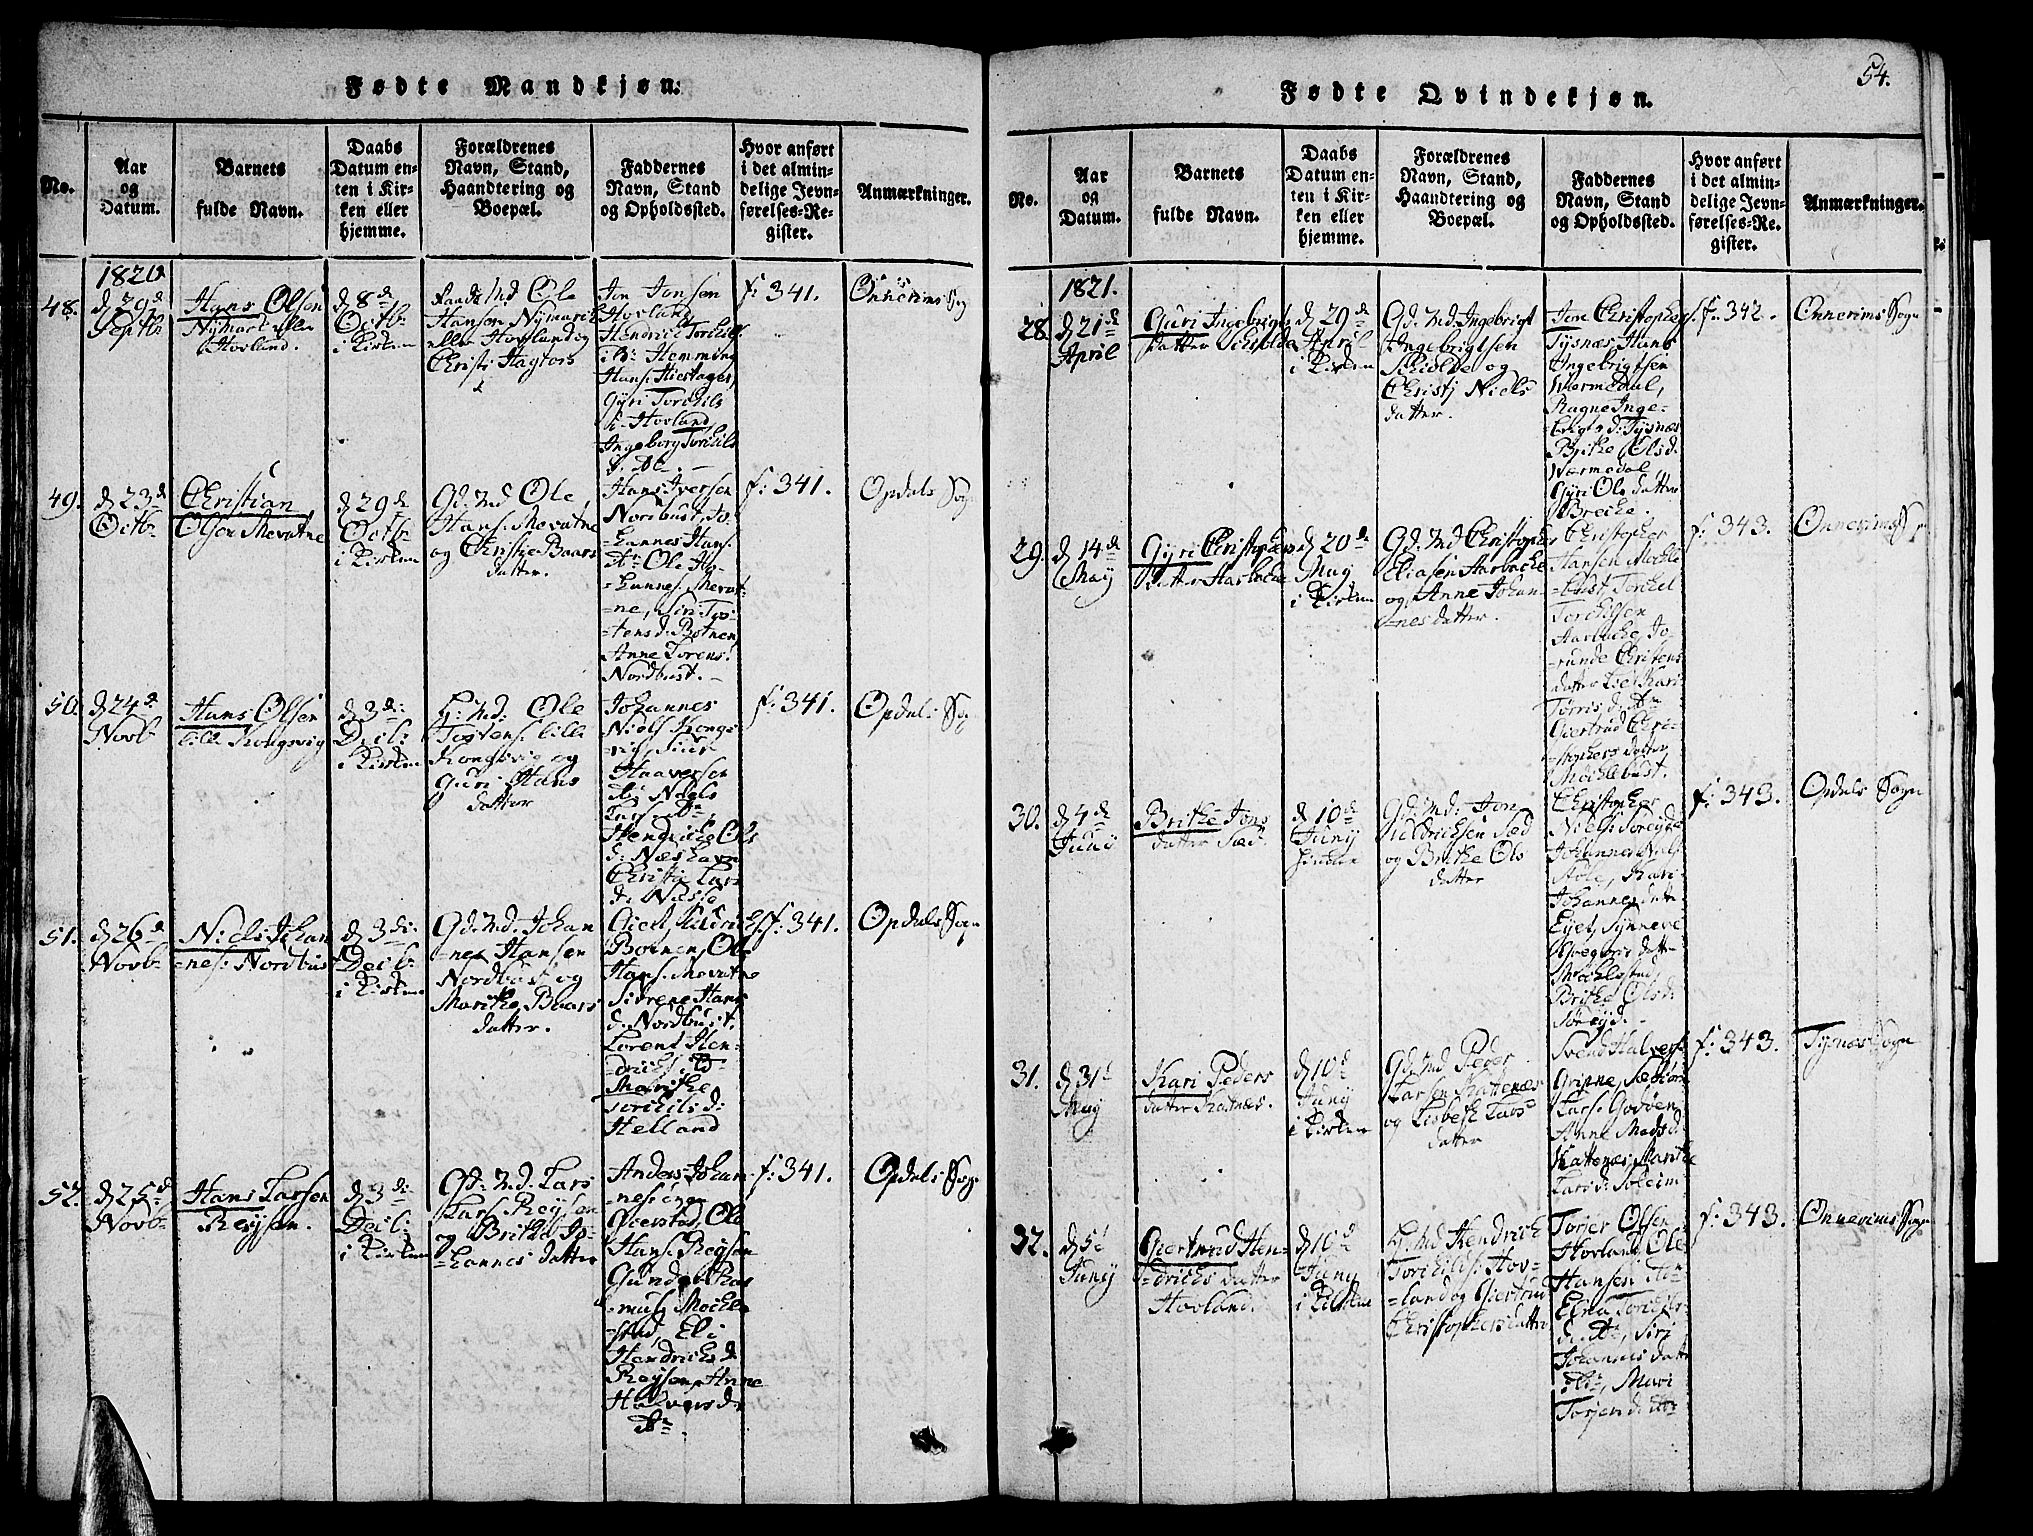 54.
Fødte Mandkjøn.
No.
Aar
og
Datum.
Barnets
fulde Navn.
Daabs
Datum en-
ten i Kir-
ken eller
hjemme.
Forældrenes
Navn, Stand,
Haandtering og
Boepæl.
Faddernes
Navn, Stand
og Opholdssted.
Hvor anført
i det almin-
delige Jevn-
førelses-Re-
gister.
Anmærkninger.
48.
1820
d 29d
Septbr
Hans Olsen
Nymark eller
Hovland.
d 8d
Octb
i Kirken
Md Ole
Hansen Nymark
eller Hovland og
Christi
Jon Jonsen
Hovland
Hendric Torkils
Hemming
Hans.
Gyri Torkils
d. Hovland
Ingeborg Torkils
d. Do.
f: 341.
Onnerims Sog
49.
d 23d
Octb
Christian
Olsen Mevatne
d 29d
Octb
i Kirken
Gd. Md Ole
Hans. Mevatne
og Christje Baars
datter.
Hans Iversen
Nordbust, Jo-
hannes Hans.
Do Ole Jo-
hannes. Mevat-
=ne, Siri To-
=stensd. Botnen
Anne Torens.
Nordbust.
f: 341.
Opdals Sogn
50.
d 24d
Novb
Hans Olsen
lille Kongsvig
d 3di
Decb:
i Kirken
H. Md: Ole
Tostens. lille
Kongsvig og
Guri Hans
datter
Johannes
Niels Kongs
vig, Siur
Haaversen
do Niels
Lars. Do,
Hendrikke Ols
d: Næshavn
Christj Lars
d.
f: 341.
Opdals Sog
51.
d 26d
Novb
Niels Johan
=nes: Nordbust
d 3di:
Decb:
i Kirken
Gd. Md. Johan
=nes Hansen
Nordbust og
Marithe Baars
datter.
Giert Hidrichs
Botnen, Ole
Hans. Mevatne
Sidrene Hans
d. Nordbust.
Lorent Hen-
=drichs. Do
Marithe
Torkils d:
Helland
f: 341.
Opdals Sogn
52.
d 25d
Novb
Hans Larsen
Røysen.
d 3di
Decb:
i Kirken
Gd. Md. Lars
Lars. Røysen
og Brithe Jo-
=hannes datter
Anders Johan-
=nes: øvre
Gierstad, Ole
Hans. Røysen
Gunda Ras
=mus. Mochle
=stad, Eli
Hendrichs d
Røysen, Anne
Halvors d:
Do.
f: 341.
Opdals Sogn
Fødte Qvindekjøn.
No.
Aar
og
Datum.
Barnets
fulde Navn.
Daabs
Datum en-
ten i Kir-
ken eller
hjemme.
Forældrenes
Navn, Stand,
Haandtering og
Boepæl.
Faddernes
Navn, Stand
og Opholdssted.
Hvor anført
i det almin-
delige Jevn-
førelses-Re-
gister.
Anmærkninger.
28.
1821.
d 21d
April
Guri Ingebrigts
datter Schiolde
d 29d
April
i Kirken
Gd. Md. Ingebrigt
Ingebrigtsen
Schiolde og
Christj Niels
datter.
Jon Christophers.
Tysnæs, Hans
Ingebrigtsen
Wærmedal,
Ragne Inge-
brigts d: Tysnæs
Brithe Olsd.
Wærmedal
Gyri Ols datter
Breche.
f: 342.
Onnerims Sogn
29.
d 14d
May
Gyri Christophers
datter Aarbache
d 20d
May
i Kirken
Gd. Md Christopher
Eliasen Aarbache
og Anne Johan-
=nes datter.
Christopher
Hansen Mochle
=bust, Torkel
Torkilsen
Aarbache, Jo-
=runde Christens
datter Kari
Torris d. Do
Giertrud Chri-
=stophers datter
Mochlebust.
f: 343.
Onnerims Sogn
30.
d 4d
Juny
Brithe Jons
datter Sæd.
d 10d
Juny
Gd. Md: Jon
Hidrichsen Sæd
og Brithe Ols
datter
Christopher
Niels. Søreyde
Johannes Niels
Kari
Johannes datter
Eyet, Synneve
datter
Mochlestad,
Brithe Ols d:
Søreyd.
f: 343.
Opdals Sogn
31.
d 31d
May
Kari Peders
datter Katnæs.
d 10d
Juny
i Kirken
Gd. Md Peder
Larsen Katenæs
og Lisbeth Lars
datter
Svend Halvers.
Gripne,
Lars. Godøen
Anne Mads d.
Katenæs, Marithe
Lars d: Soleim
f: 343.
Tysnæs Sogn
32.
d 5d
Juny
Giertrud Hen-
=drichs datter
Hovland.
d 10d
Juny
i Kirken
H. Md Hendrich
Torkils. Hov-
=land og Giertrud
Christophers datter
Torjer Olsen
Hovland, Ole
Hansen do
Elna Torkils
d. Do, Siri
Johannes datter
do, Mari
Torjen d. do
f: 343.
Onnerims Sogn